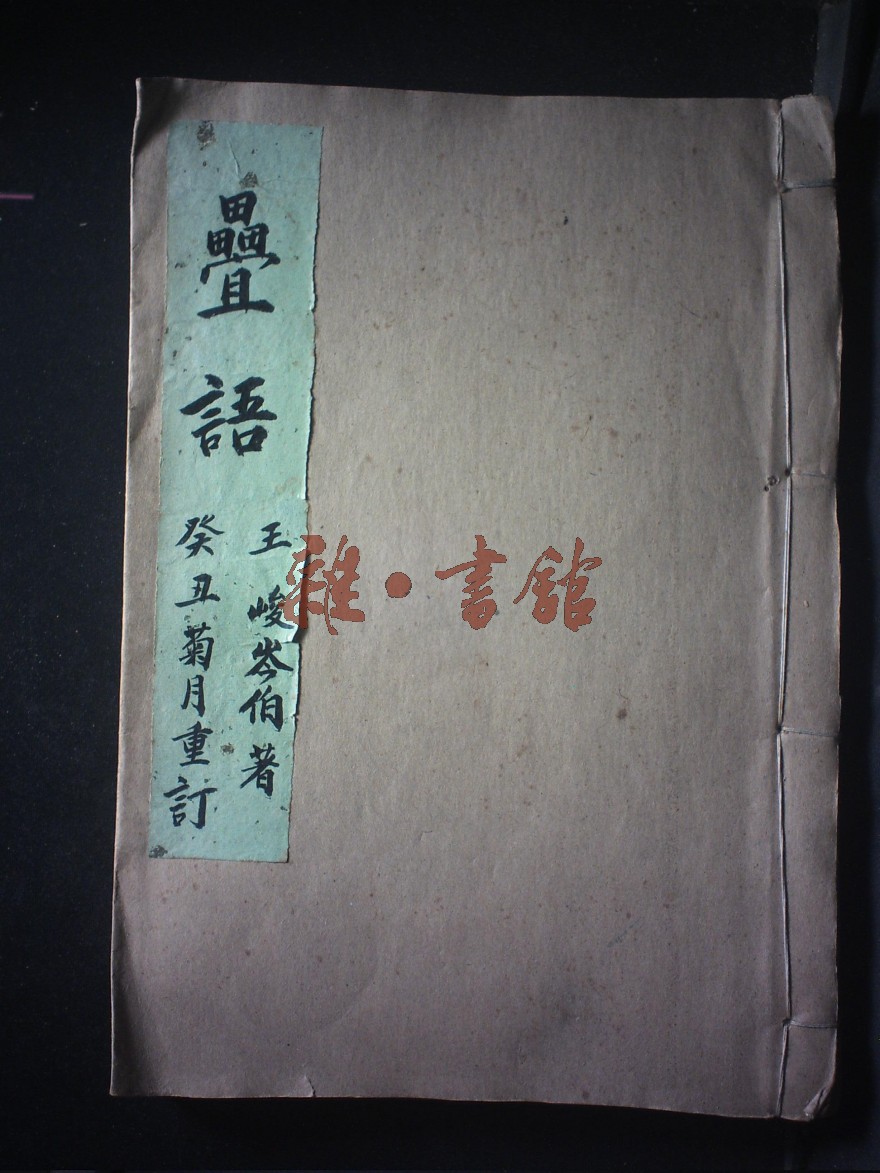 疊語
王峻岑伯著
癸丑菊月重訂
雜·書館